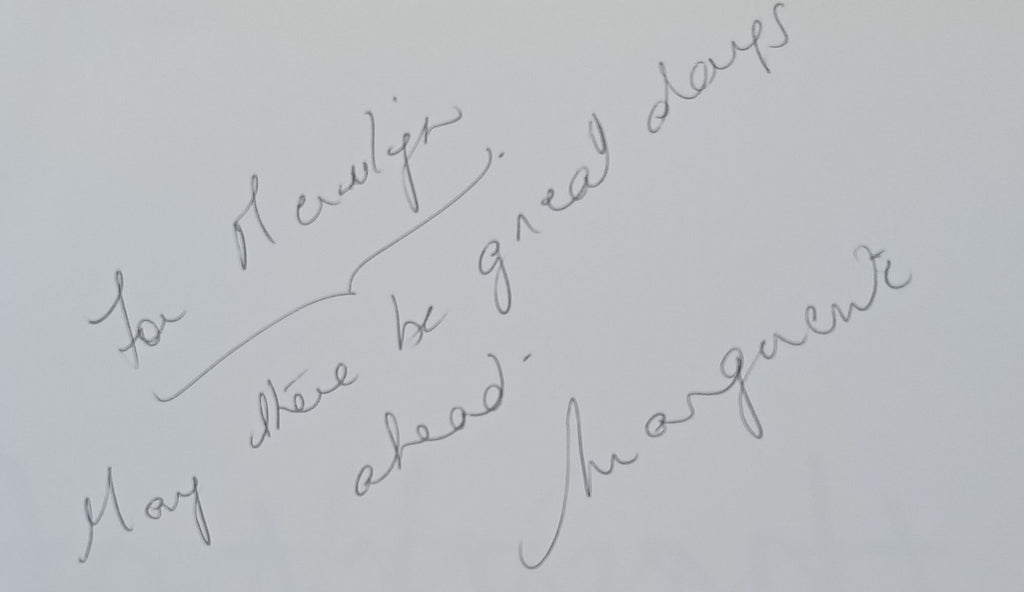 For
May there be great days
ahead.
Marguerite